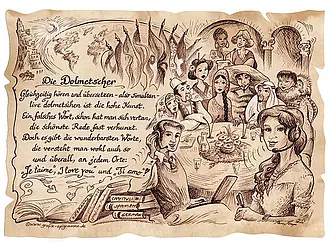 Die Dolmetscher
Gleichzeitig hören und übersetzen - also Simultan-
live dolmetschen ist die hohe Kunst.
Ein falsches Wort, schon hat man sich vertan,
die schönste Rede fast verhunzt.
Doch es gibt die wunderbarsten Worte,
die versteht man wohl auch so
und überall, an jedem Orte:
"Je t'aime", "I love you" und "Ti amo"!